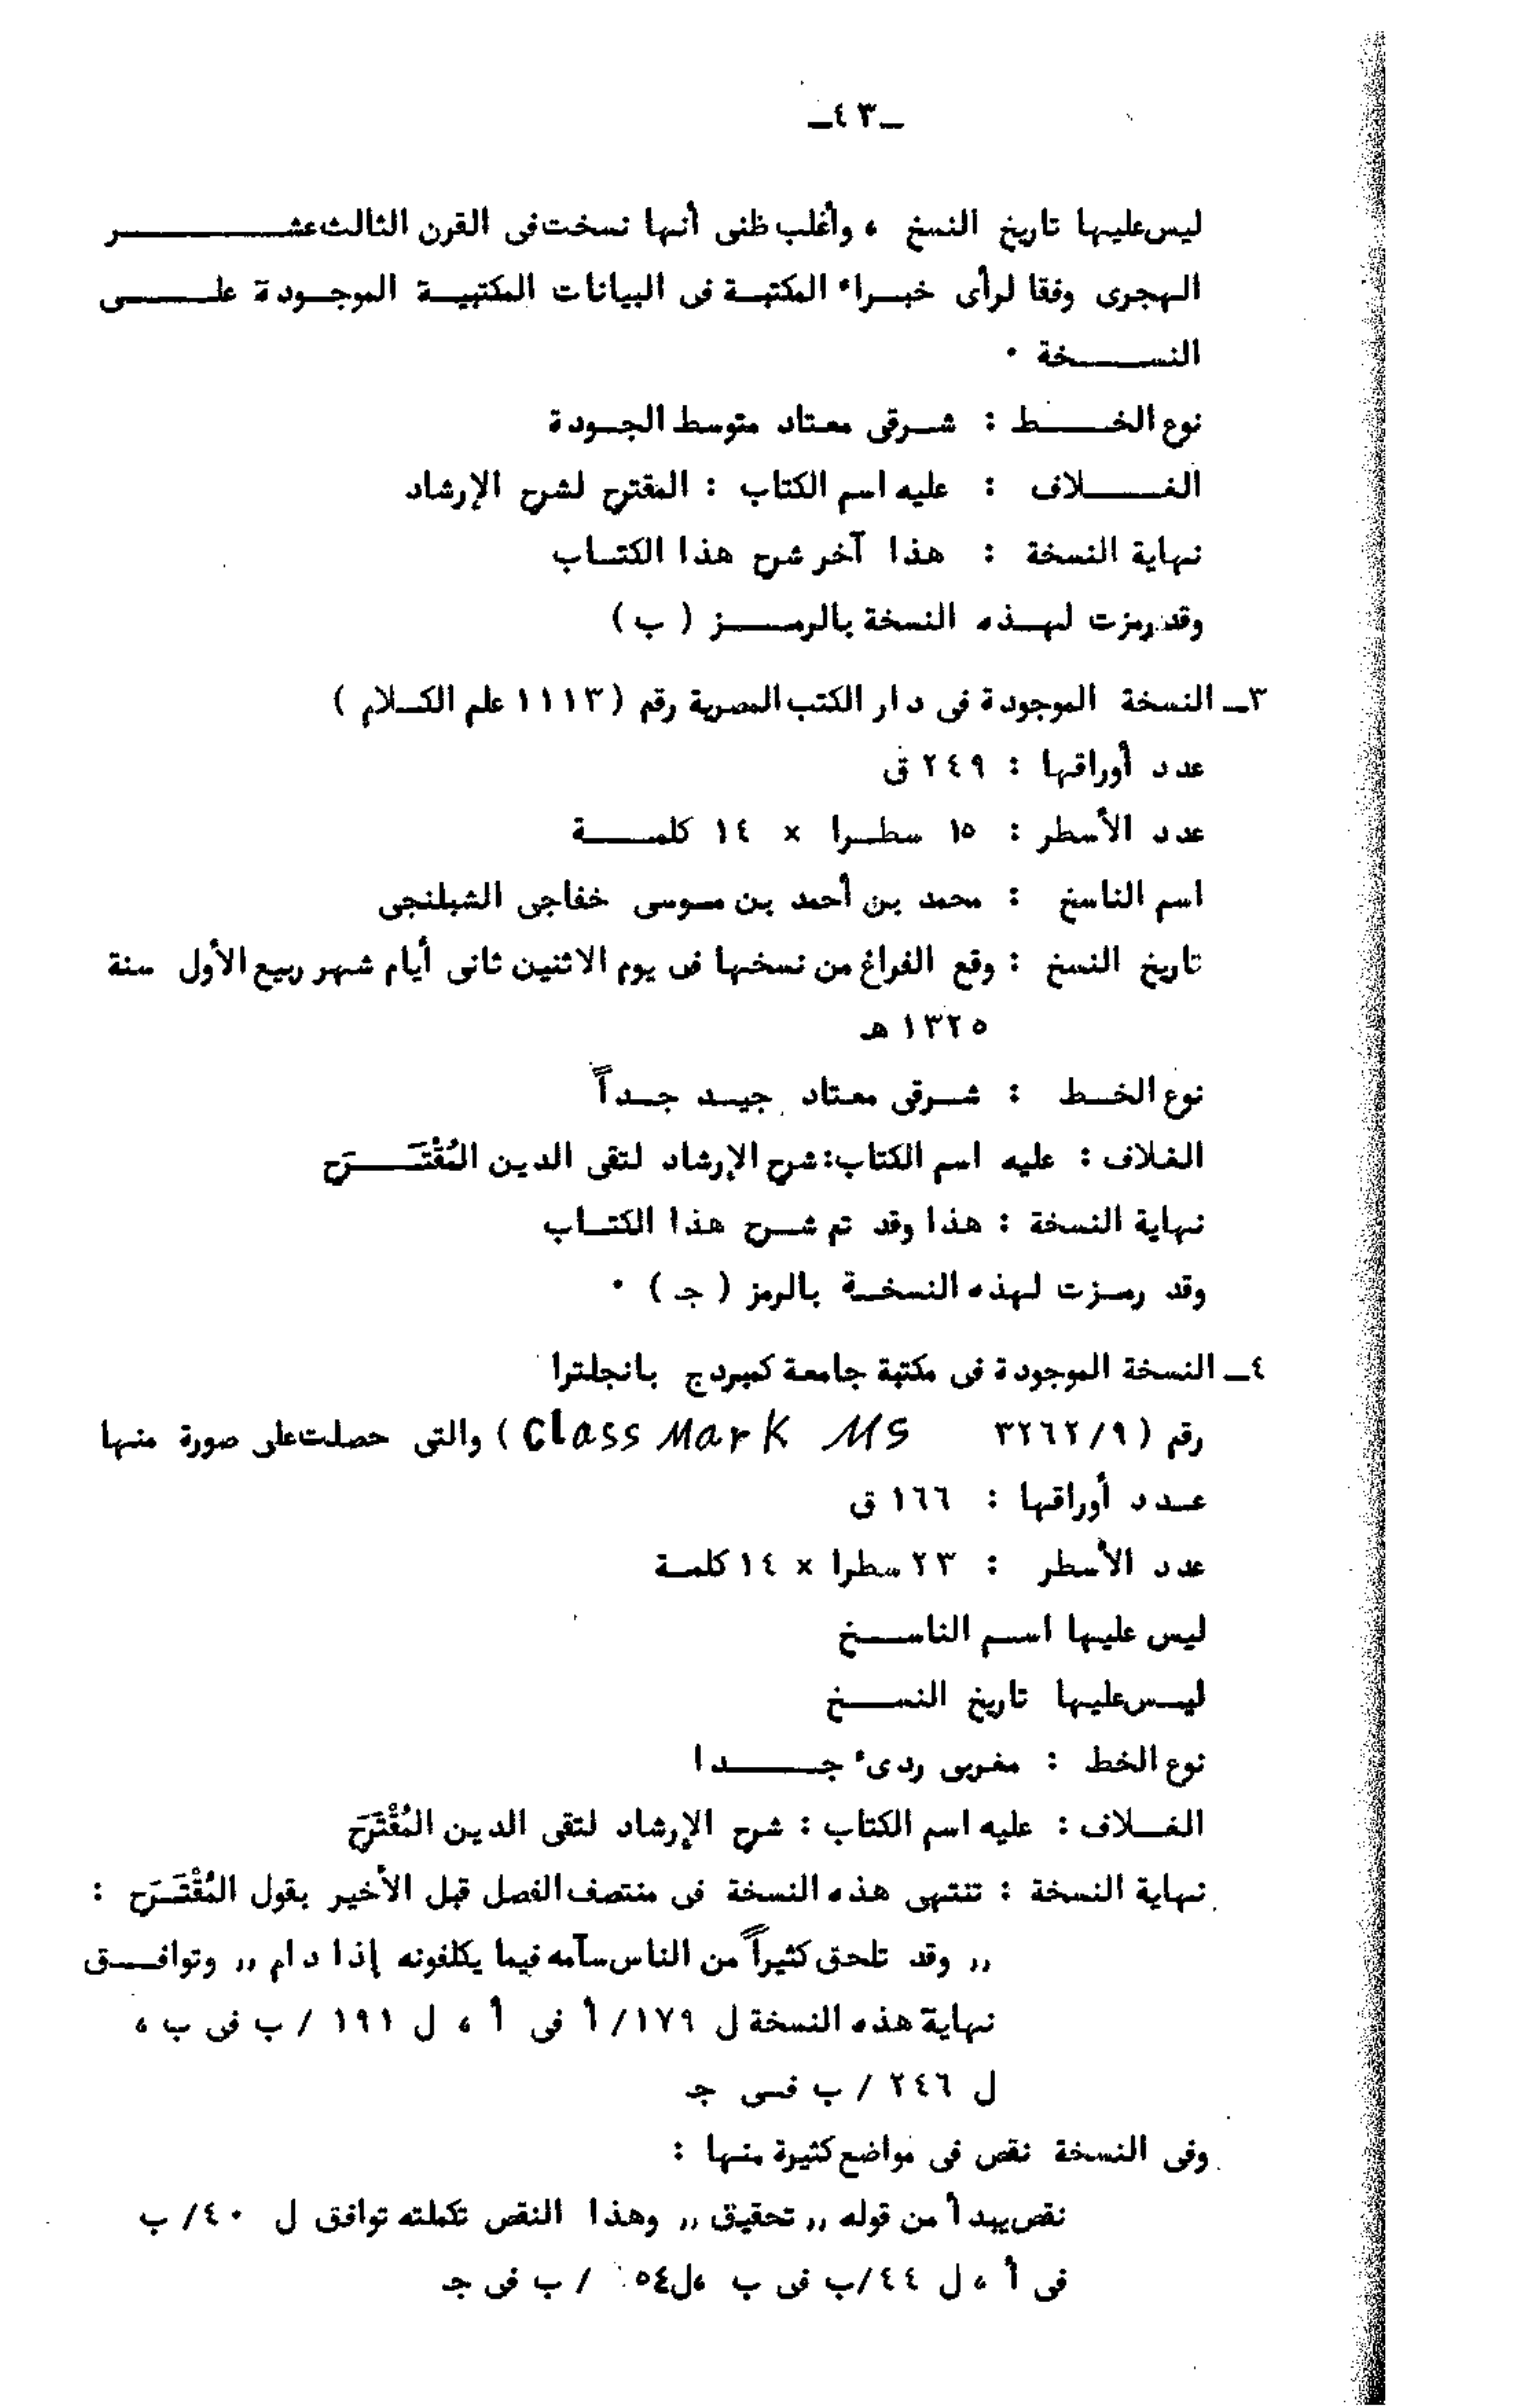 ـ٤٣ـ
ليس عليها تاريخ النسخ ، وأغلب ظنى أنها نسخت فى القرن الثالث عشـر
الهجرى وفقا لرأى خبـراء المكتبـة فى البيانات المكتبيـة الموجـودة علـى
النسـخة ٠
نوع الخـط : شـرقى معتاد متوسط الجـودة
الغـلاف : عليه اسم الكتاب : المقترح لشرح الإرشاد
نهاية النسخة : هذا آخر شرح هذا الكتـاب
وقد رمزت لهـذه النسخة بالرمـز ( ب )
٣ـ النسخة الموجودة فى دار الكتب المصرية رقم ( ١١١٣ علم الكـلام )
عدد أوراقها : ٢٤٩ ق
عدد الأسطر : ١٥ سطـرا × ١٤ كلمـة
اسم الناسخ : محمد بن أحمد بن مـوسى خفاجى الشبلنجى
تاريخ النسخ : وقع الفراغ من نسخها فى يوم الاثنين ثانى أيام شهر ربيع الأول سنة
١٣٢٥ هـ
نوع الخـط : شـرقى معتاد جيـد جـداً
الغلاف : عليه اسم الكتاب : شرح الإرشاد لتقى الدين المُقْتَـرَح
نهاية النسخة : هذا وقد تم شـرح هذا الكتـاب
وقد رمـزت لهذه النسخـة بالرمز ( جـ ) ٠
٤ـ النسخة الموجودة فى مكتبة جامعة كمبردج بانجلترا
رقم ( ٣٢٦٢/٩ Class Mark MS ) والتى حصلت على صورة منها
عـدد أوراقها : ١٦٦ ق
عدد الأسطر : ٢٣ سطرا × ١٤ كلمـة
ليس عليها اسـم الناسـخ
ليـس عليها تاريخ النسـخ
نوع الخط : مغربى ردىء جـدا
الغـلاف : عليه اسم الكتاب : شرح الإرشاد لتقى الدين المُقْتَرَح
نهاية النسخة : تنتهى هذه النسخة فى منتصف الفصل قبل الأخير بقول المُقْتَـرَح :
,, وقد تلحق كثيراً من الناس سآمه فيما يكلفونه إذا دام ,, وتوافـق
نهاية هذه النسخة ل ١٧٩/ أ فى أ ، ل ١٩١ / ب فى ب ،
ل ٢٤٦ / ب فـى جـ
وفى النسخة نقص فى مواضع كثيرة منها :
نقص يبدأ من قوله ,, تحقيق ,, وهذا النقص تكملته توافق ل ٤٠/ ب
فى أ ، ل ٤٤/ب فى ب ،ل٥٤ / ب فى جـ